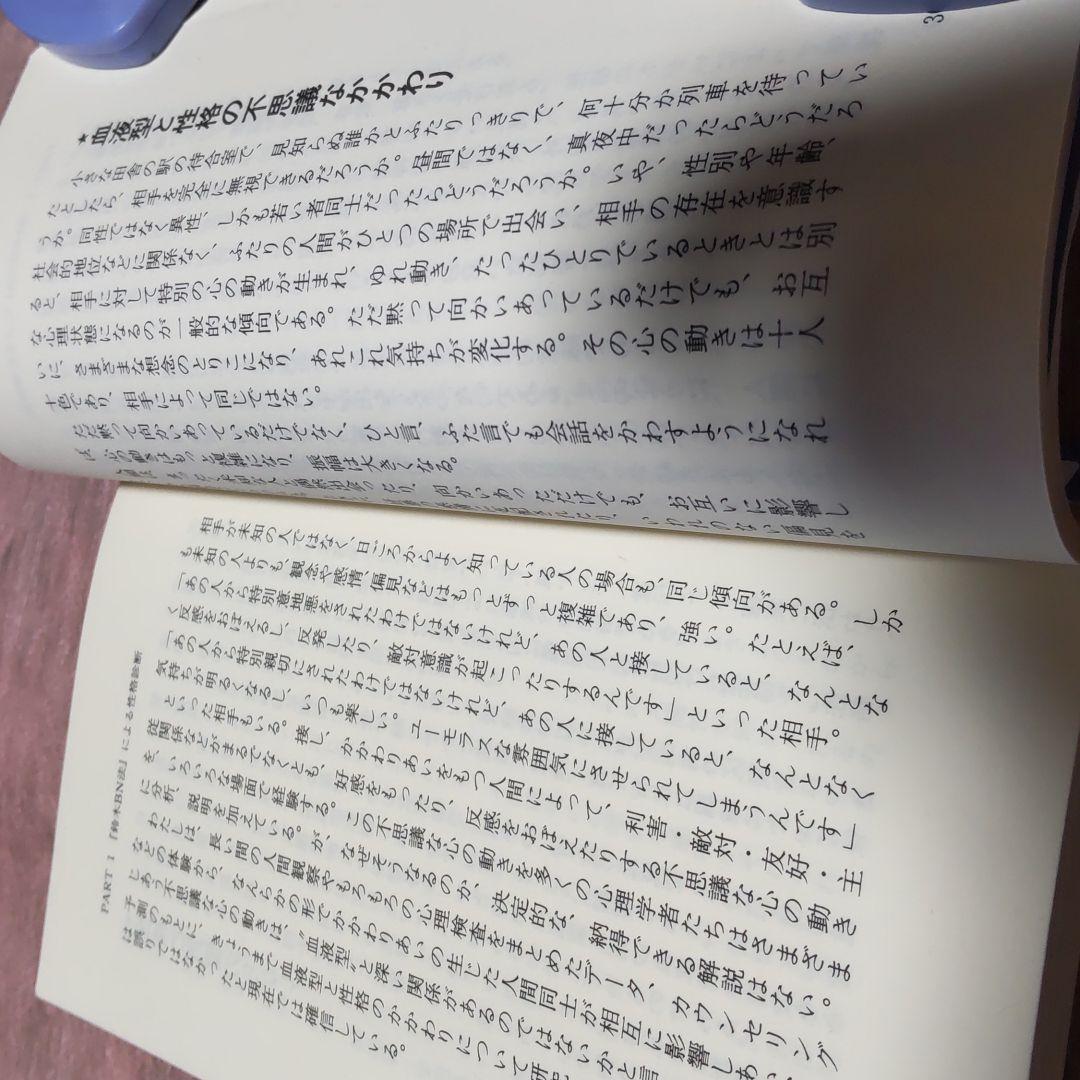 *血液型と性格の不思議なかかわり
小さな田舎の駅の待合室で、見知らぬ誰かとふたりっきりで、何十分か列車を待ってい
たとしたら、相手を完全に無視できるだろうか。昼間ではなく、真夜中だったらどうだろ
うか。同性ではなく異性、しかも若い者同士だったらどうだろうか。いや、性別や年齢、
社会的地位などに関係なく、ふたりの人間がひとつの場所で出会い、相手の存在を意識す
ると、相手に対して特別の心の動きが生まれ、ゆれ動き、たったひとりでいるときとは別
な心理状態になるのが一般的な傾向である。ただ黙って向かいあっているだけでも、お互
いに、さまざまな想念のとりこになり、あれこれ気持ちが変化する。その心の動きは十人
十色であり、相手によって同じではない。
ただ黙って向かいあっているだけでなく、ひと言、ふた言でも会話をかわすようになれ
ば、心の動きはもっと複雑になり、振幅は大きくなる。
向かいあっただけでも、お互いに影響し
いわれのない偏見を
相手が未知の人ではなく、日ごろからよく知っている人の場合も、同じ傾向がある。しか
も未知の人よりも、観念や感情、偏見などはもっとずっと複雑であり、強い。たとえば、
「あの人から特別意地悪をされたわけではないけれど、あの人と接していると、なんとな
く反感をおぼえるし、反発したり、敵対意識が起こったりするんです」といった相手。
「あの人から特別親切にされたわけではないけれど、あの人に接していると、なんとなく
気持ちが明るくなるし、いつも楽しい。ユーモラスな雰囲気にさせられてしまうんです」
といった相手もいる。接し、かかわりあいをもつ人間によって、利害・敵対・友好・主
従関係などがまるでなくとも、好感をもったり、反感をおぼえたりする不思議な心の動き
を、いろいろな場面で経験する。この不思議な心の動きを多くの心理学者たちはさまざま
に分析、説明を加えている。が、なぜそうなるのか、決定的な、納得できる解説はない。
わたしは、長い間の人間観察やもろもろの心理検査をまとめたデータ、カウンセリング
などの体験から、なんらかの形でかかわりあいの生じた人間同士が相互に影響しあい、
しあう不思議な心の動きは、“血液型”と深い関係があるのではないかと
予測のもとに、きょうまで血液型と性格のかかわりについて研
は誤りではなかったと現在では確信している。
PART 1 『鈴木BN法』による性格診断